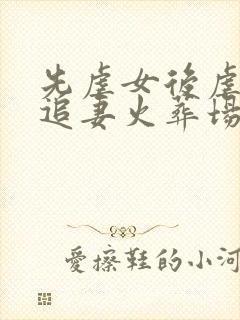 先虐女後虐
追妻火葬場
愛擦鞋的小河